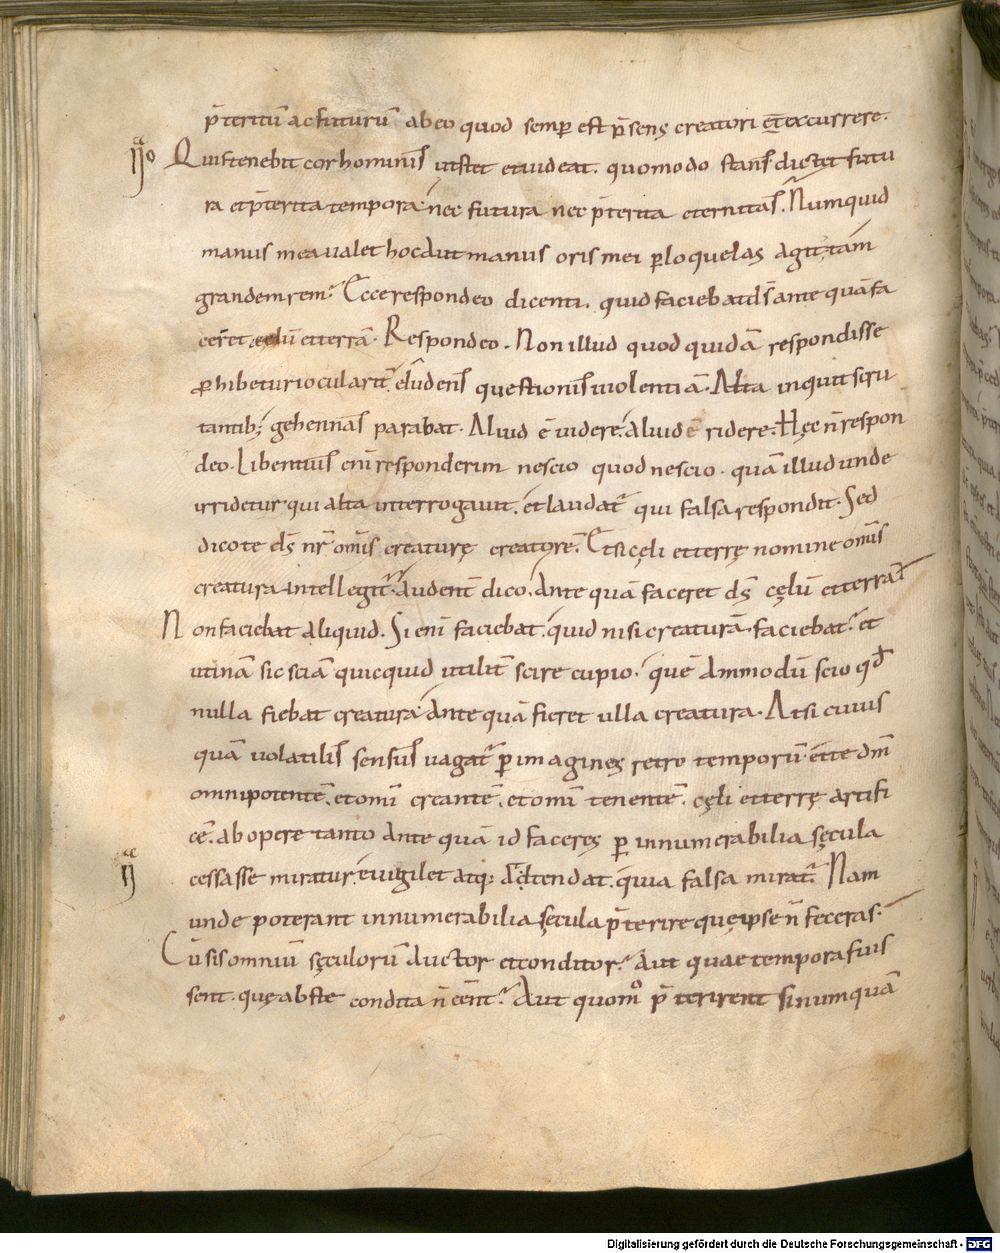 p̄teritū ac futurū ab eo quod semp est p̄sens creatori et excurrere.
Quis tenebit cor hominis ut stet et uideat. quomodo stans dictet futu
ra et p̄terita tempora nec futura nec p̄terita eternitas. Numquid
manus mea ualet hoc aut manus oris mei p loquelas agit tam
grandem rem. Ecce respondeo dicenti. quid faciebat ds̄ ante quā fa
ceret cęlū et terrā. Respondeo. Non illud quod quidā respondisse
phibetur ioculariť eludens questionis uiolentiā. Alta inquit scru
tantib; gehennas parabat. Aliud ē uidere. aliud ē ridere. Hęc n̄ respon
deo. Libentius enī responderim nescio quod nescio. quā illud unde
irridetur qui alta interrogauit. et laudat̄ qui falsa respondit. Sed
dico te ds̄ nr̄ omīs creaturę creatorē. Et si cęli et terrę nomine omīs
creatura intellegit̄. audent̄ dico. Ante quā faceret ds̄ cęlū et terrā
Non faciebat aliquid. Si enī faciebat. quid nisi creaturā faciebat. et
utinam sic sciā quicquid utilit̄ scire cupio. quē ammodū scio qd̄
nulla fiebat creatura ante quā fieret ulla creatura. At si cuius
quā uolatilis sensus uagat̄ p imagines retro temporū et te dm̄
omnipotentē. et omī creantē. et omī tenentē. cęli et terrę artifi
cē. ab opere tanto ante quā id faceres p innumerabilia sęcula
cessasse miratur. euigilet atq; adtendat. quia falsa mirat̄. Nam
unde poterant innumerabilia sęcula p̄terire quę ipse n̄ feceras.
Cū sis omniū sęculorū auctor et conditor. Aut quae tempora fuis
sent. quę abs te condita n̄ eēnt. Aut quom̊ p̄terirent si numquā
Digitalisierung gefördert durch die Deutsche Forschungsgemeinschaft - DFG